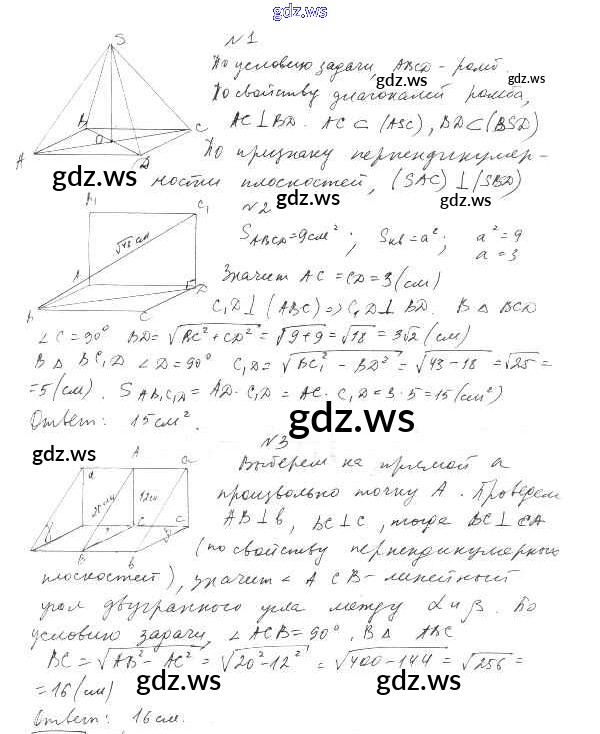 gdz.ws
№1
По условию задачи, ABCD - ромб.
gdz.ws
gdz.ws
По свойству диагоналей ромба,
AC⊥BD. AC⊂(ASC), BD⊂(BSD)
По признаку перпендикуляр-
ности плоскостей, (SAC)⊥(SBD)
gdz.ws
gdz.ws
gdz.ws
S
B
C
O
A
D
№2
S ABCD = 9см²; Sкв = a²; a² = 9
a = 3
Значит AC = CD = 3 (см)
C₁D⊥(ABC) => C₁D⊥BD. В △ BCD
B₁
C₁
√43 см
A
D
B
C
∠C = 90° BD = √BC² + CD² = √9+9 = √18 = 3√2 (см)
В △ BC₁D ∠D = 90° C₁D = √BC₁² - BD² = √43 - 18 = √25 =
= 5 (см). S AB₁C₁D = AD · C₁D = AC · C₁D = 3 · 5 = 15 (см²)
Ответ: 15 см².
gdz.ws
gdz.ws
№3
Выберем на прямой a
произвольно точку A. Проведем
AB⊥b, BC⊥c, тогда BC⊥CA
(по свойству перпендикулярных
плоскостей), значит ∠ACB - линейный
угол двугранного угла между α и β. По
условию задачи, ∠ACB = 90°, В △ ABC
A
a
α
20 см
12 см
C
c
B
b
BC = √AB² - AC² = √20² - 12² = √400 - 144 = √256 =
= 16 (см)
gdz.ws
gdz.ws
Ответ: 16 см.